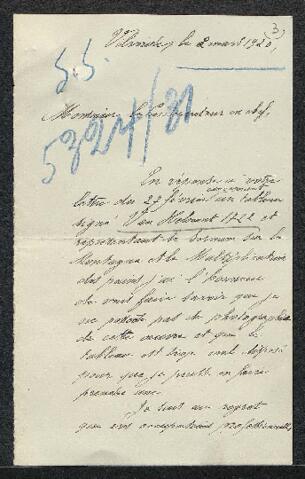 (3)
Vilvorde, le 2 mars 1920,
S.S.
Monsieur le Conservateur en chef,
5324/31
En réponse à votre
lettre du 27 février concernant un tableau
signé Van Helmont 1722 et
représentant le Sermon sur la
Montagne et la Multiplication
des pains, j'ai l'honneur
de vous faire savoir que je
ne possède pas de photographie
de cette œuvre et que le
tableau est trop mal disposé
pour que je puisse en faire
prendre une.
Je suis au regret
que mes occupations professionnelles